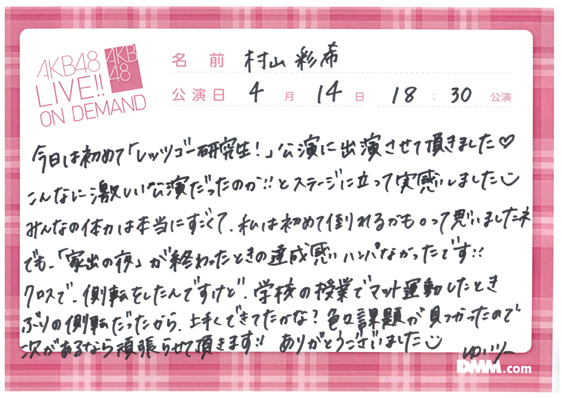 AKB48
LIVE!!
ON DEMAND
AKB
48
名前 村山彩希
公演日 4月14日 18:30公演
今日は初めて「レッツゴー研究生!」公演に出演させて頂きました♡
こんなに激しい公演だったのか!!とステージに立って実感しました
みんなの体力は本当にすごくて、私は初めて倒れるかもって思いましたネ
でも、「家出の夜」が終わったときの達成感ハンパなかったです!!
クロスで、側転をしたんですけど、学校の授業でマット運動したとき
ぶりの側転だったから、上手くできてたかな?色々課題が見つかったので
次があるなら頑張らせて頂きます!! ありがとうございました
DMM.com